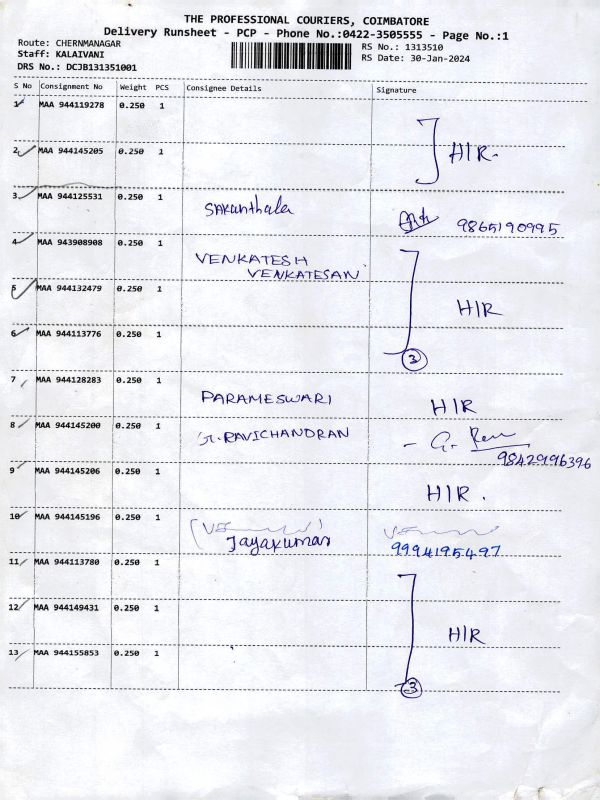 THE PROFESSIONAL COURIERS, COIMBATORE
Delivery Runsheet - PCP - Phone No.:0422-3505555 - Page No.:1
Route: CHERNMANAGAR
Staff: KALAIVANI
DRS No.: DCJB131351001
RS No.: 1313510
RS Date: 30-Jan-2024
S No Consignment No Weight PCS Consignee Details Signature
1 MAA 944119278 0.250 1
HIR.
2 MAA 944145205 0.250 1
3 MAA 944125531 0.250 1
Sakunthala
9865190995
4 MAA 943908908 0.250 1
VENKATESH
VENKATESAN
5 MAA 944132479 0.250 1
HIR
6 MAA 944113776 0.250 1
3
7 MAA 944128283 0.250 1
PARAMESWARI HIR
8 MAA 944145200 0.250 1
RAVICHANDRAN - G. 
9842996396
9 MAA 944145206 0.250 1
HIR.
10 MAA 944145196 0.250 1
Jayakumar 9994195497
11 MAA 944113780 0.250 1
12 MAA 944149431 0.250 1
HIR
13 MAA 944155853 0.250 1
3